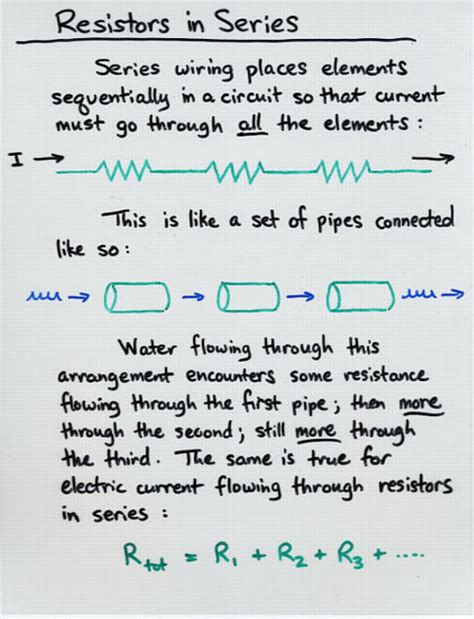 Resistors in Series
Series wiring places elements
sequentially in a circuit so that current
must go through all the elements :
I →
→
This is like a set of pipes connected
like so :
→ → → →
Water flowing through this
arrangement encounters some resistance
flowing through the first pipe ; then more
through the second ; still more through
the third . The same is true for
electric current flowing through resistors
in series :
R_tot = R_1 + R_2 + R_3 + ....